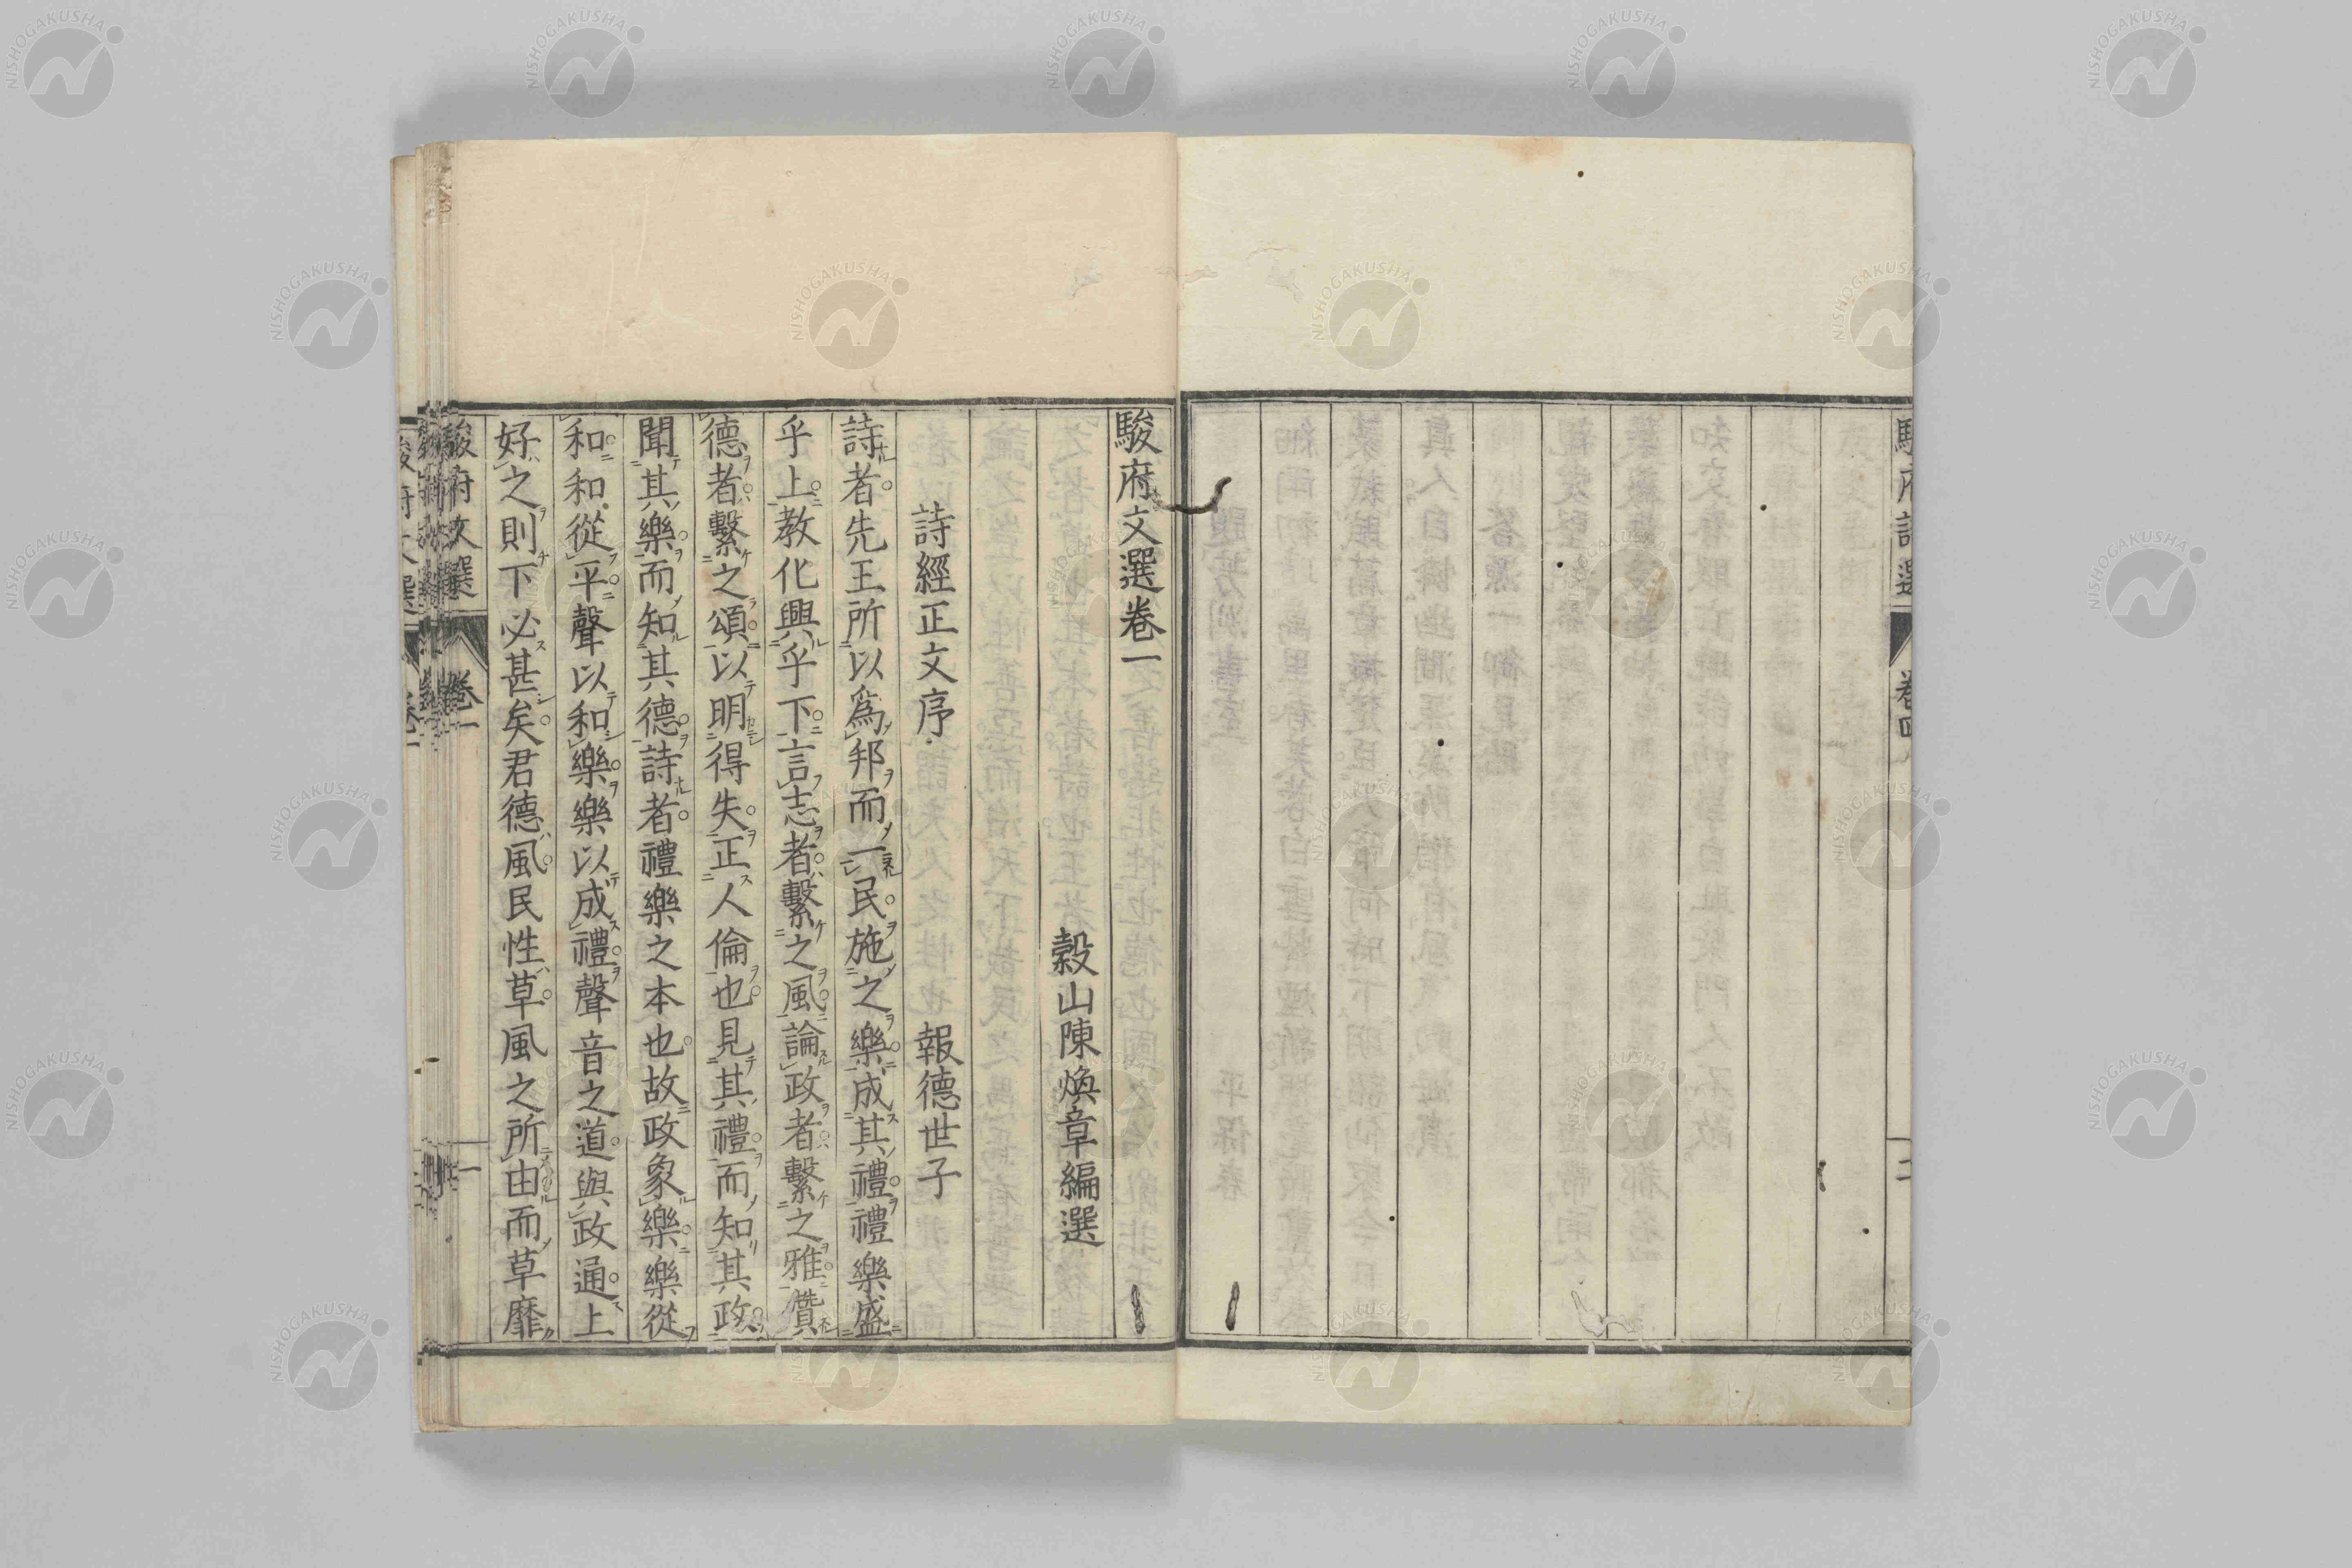 駿府文選卷一
穀山陳煥章編選
詩經正文序 報德世子
詩者先王所以爲邦而一民施之樂成其禮禮樂盛
乎上教化興乎下言志者繫之風論政者繫之雅讚
德者繫之頌以明得失正人倫也見其禮而知其政
聞其樂而知其德詩者禮樂之本也故政象樂樂從
和和從平聲以和樂樂以成禮聲音之道與政通上
好之則下必甚矣君德風民性草風之所由而草靡
駿府文選 卷一 一
NISHOGAKUSHA